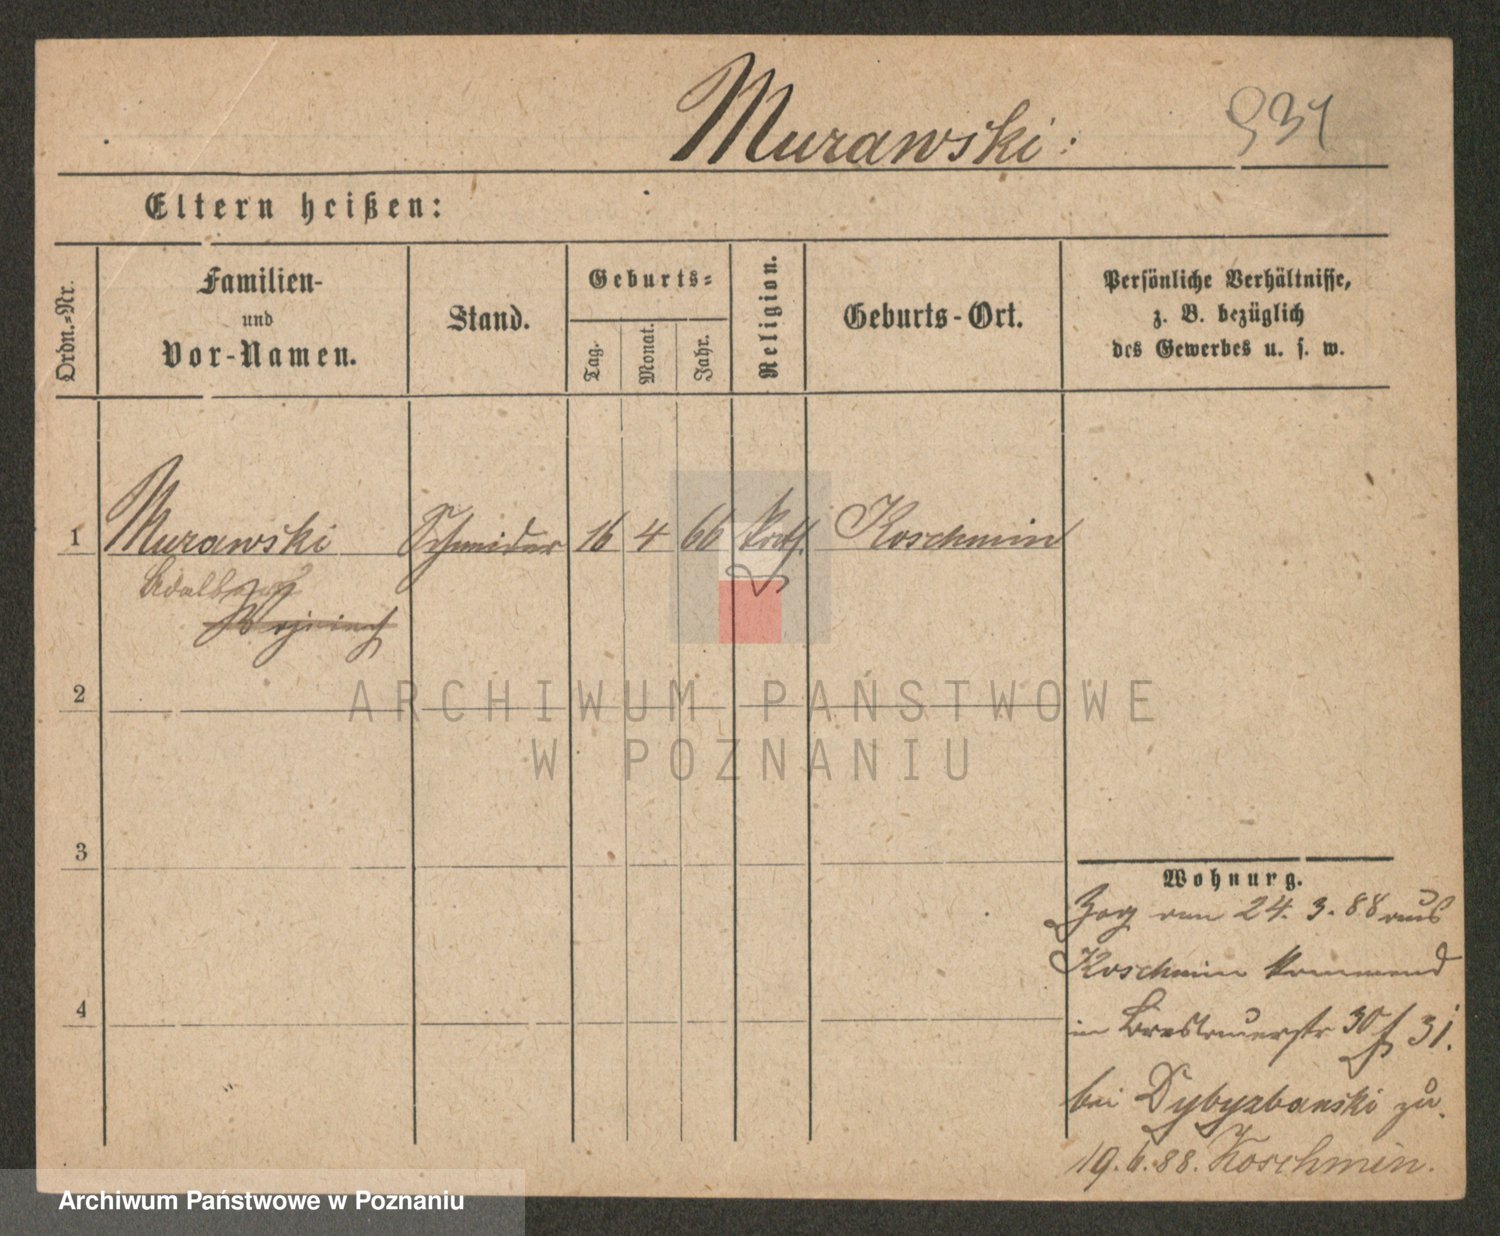 Murawski.
931
Eltern heißen:
Ordn.-Nr.
Familien-
und
Vor-Namen.
Stand.
Geburts-
Tag.
Monat.
Jahr.
Religion.
Geburts-Ort.
Persönliche Verhältnisse,
z. B. bezüglich
des Gewerbes u. s. w.
1 Murawski Schneider 16 4 66 kath. Koschmin
Adalbert
Wojciech
2
ARCHIWUM PAŃSTWOWE
W POZNANIU
3
4
Wohnurg.
Zog am 24. 3. 88 aus
Koschmin kommend
in Breslauerstr 30/31.
bei Dybyzbanski zu.
19. 6. 88. Koschmin.
Archiwum Państwowe w Poznaniu